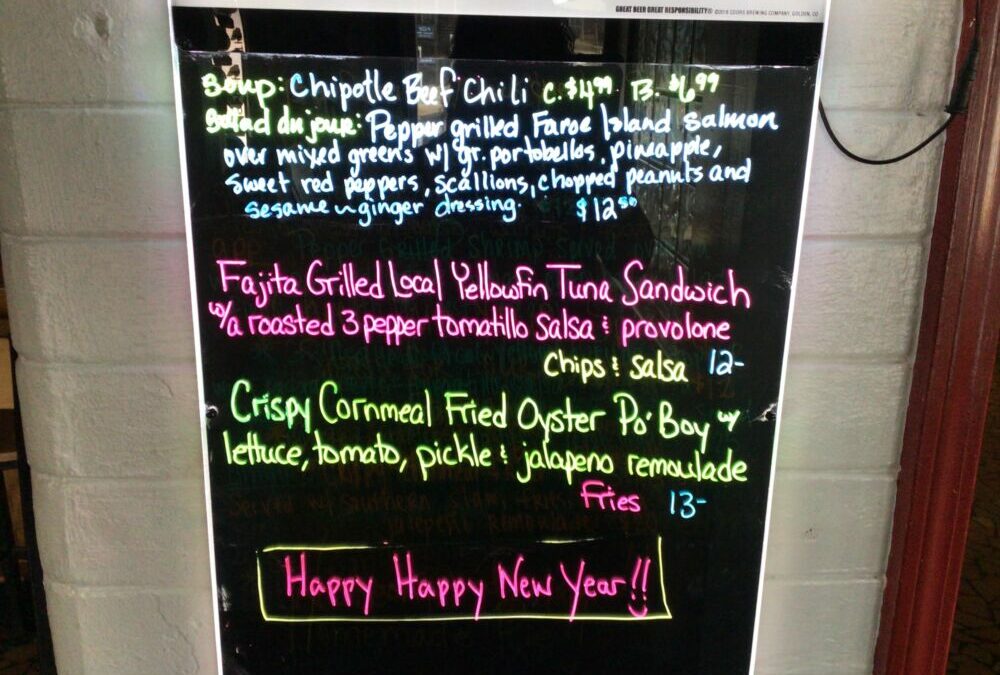 GREAT BEER GREAT RESPONSIBILITY® ©2018 COORS BREWING COMPANY, GOLDEN, CO
Soup: Chipotle Beef Chili C. $4.99 B. $6.99
Salad du jour: Pepper grilled Faroe Island Salmon
over mixed greens w/ gr. portobellos, pineapple,
sweet red peppers, scallions, chopped peanuts and
sesame ~ ginger dressing. $12.50
Fajita Grilled Local Yellowfin Tuna Sandwich
w/a roasted 3 pepper tomatillo salsa & provolone
Chips & salsa 12-
Crispy Cornmeal Fried Oyster Po' Boy w/
lettuce, tomato, pickle & jalapeno remoulade
Fries 13-
Happy Happy New Year!!